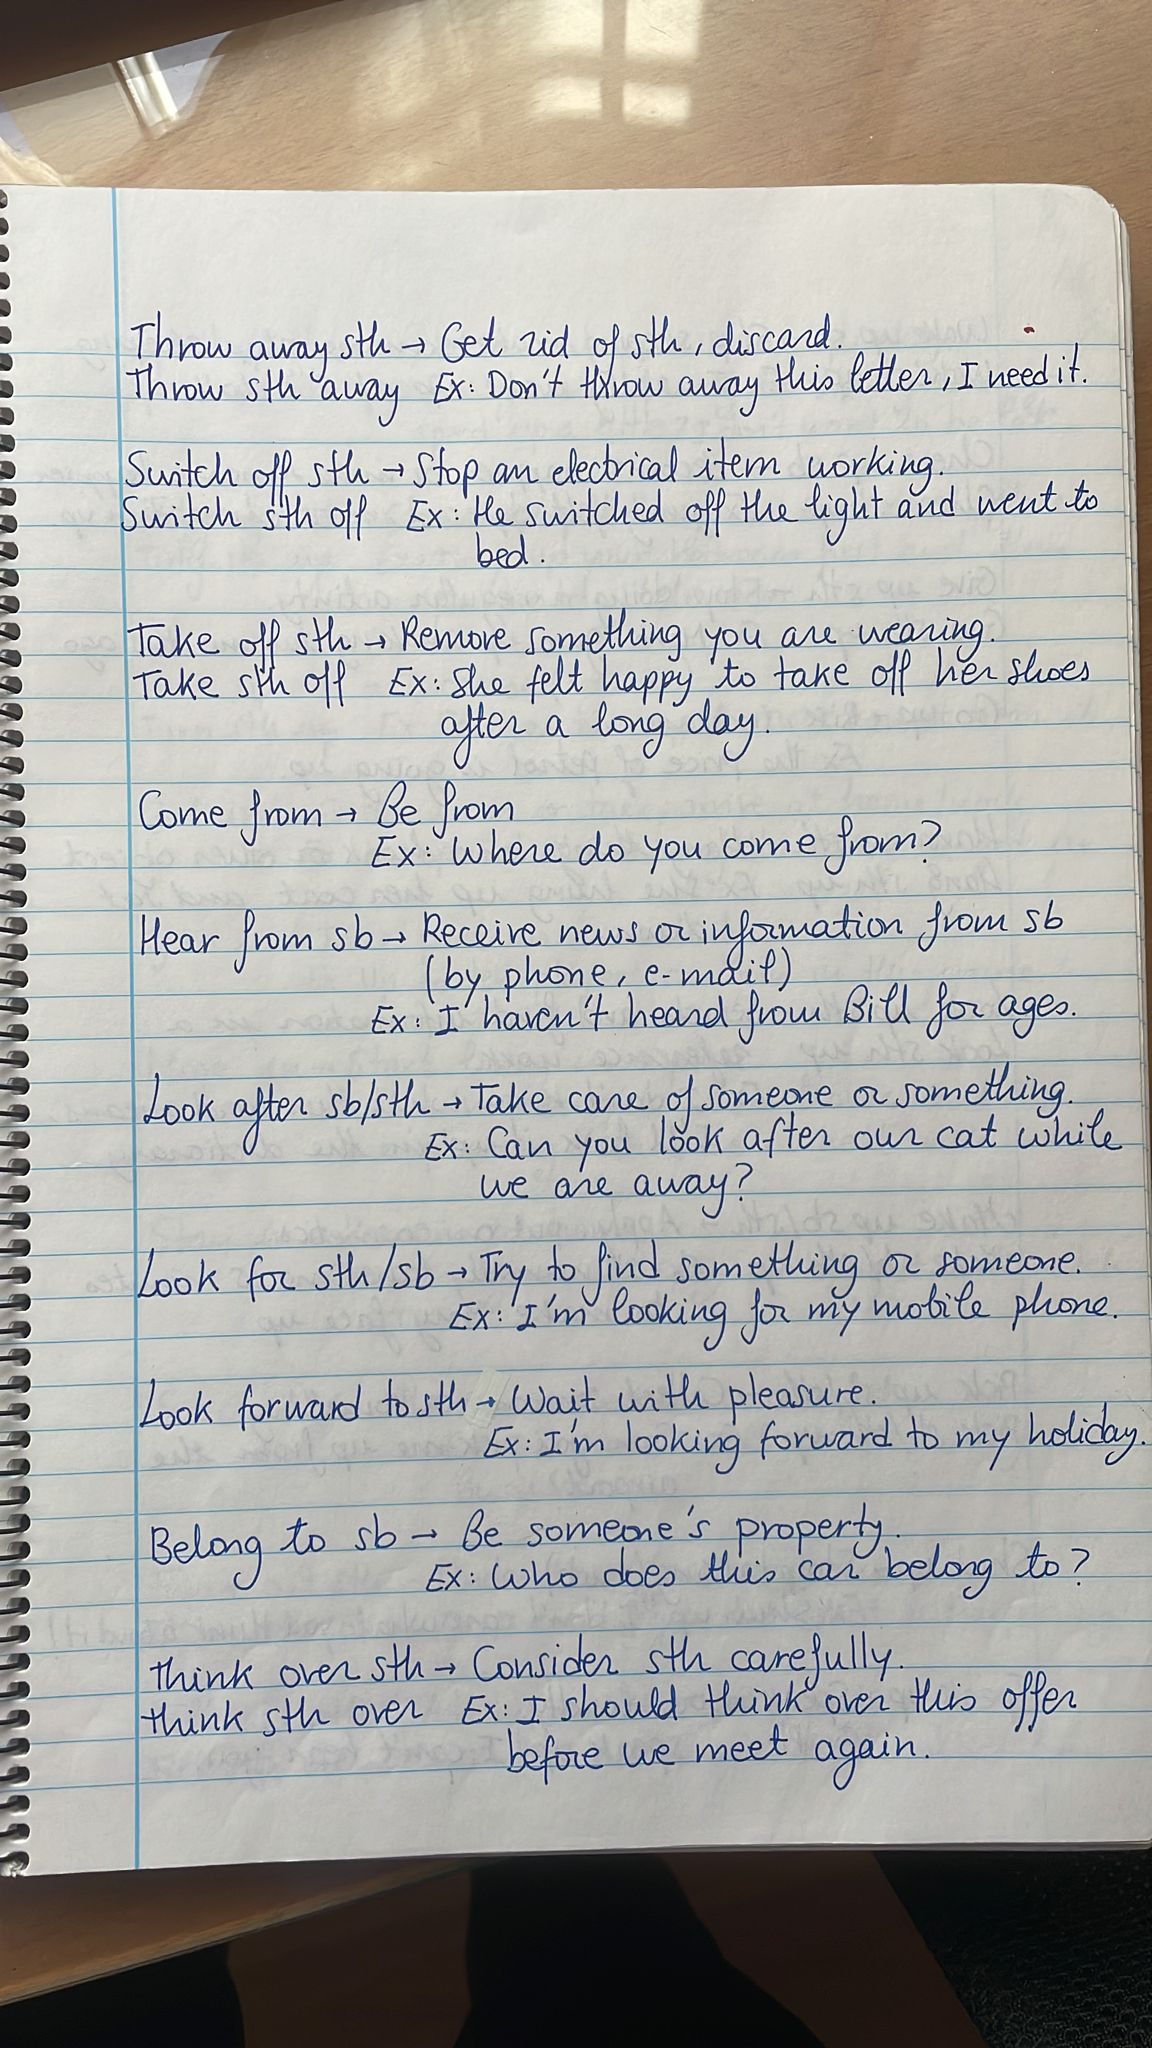 Throw away sth → Get rid of sth, discard.
Throw sth away Ex: Don't throw away this letter, I need it.
Switch off sth → Stop an electrical item working.
Switch sth off Ex: He switched off the light and went to
bed.
Take off sth → Remove something you are wearing.
Take sth off Ex: She felt happy to take off her shoes
after a long day.
Come from → Be from
Ex: Where do you come from?
Hear from sb → Receive news or information from sb
(by phone, e-mail)
Ex: I haven't heard from Bill for ages.
Look after sb/sth → Take care of someone or something.
Ex: Can you look after our cat while
we are away?
Look for sth/sb → Try to find something or someone.
Ex: I'm looking for my mobile phone.
Look forward to sth → Wait with pleasure.
Ex: I'm looking forward to my holiday.
Belong to sb → Be someone's property.
Ex: Who does this car belong to?
think over sth → Consider sth carefully.
think sth over Ex: I should think over this offer
before we meet again.